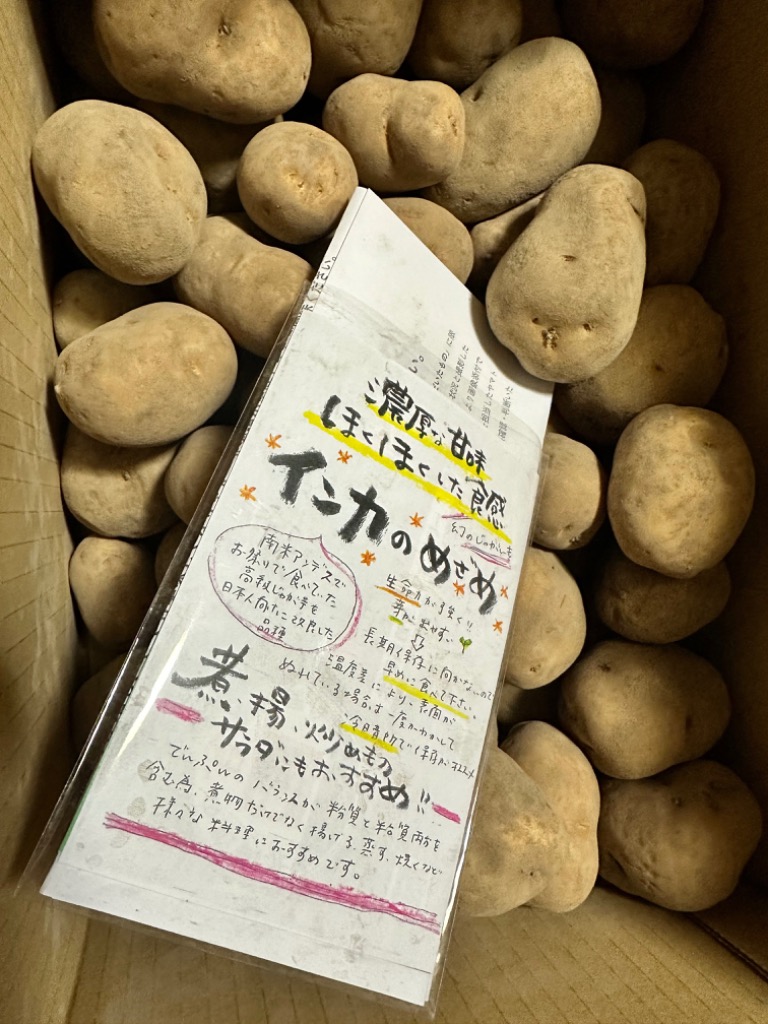 濃厚な甘味
ほくほくした食感
インカのめざめ
幻のじゃがいも
南米アンデスで
お祭りで食べていた
高級じゃが芋を
日本人向けに改良した
品種
生命力が強く!!
芽が出やすい
長期保存に向かないので
早めに食べて下さい。
温度差により表面が
ぬれている場合は一度かわかして
冷暗所で保存がオススメ
煮・揚・炒めもの
サラダにもおすすめ!!
でんぷんのバランスが粉質と粘質両方を
含む為、煮物だけでなく揚げる、蒸す、焼くなど
様々な料理におすすめです。
ください。